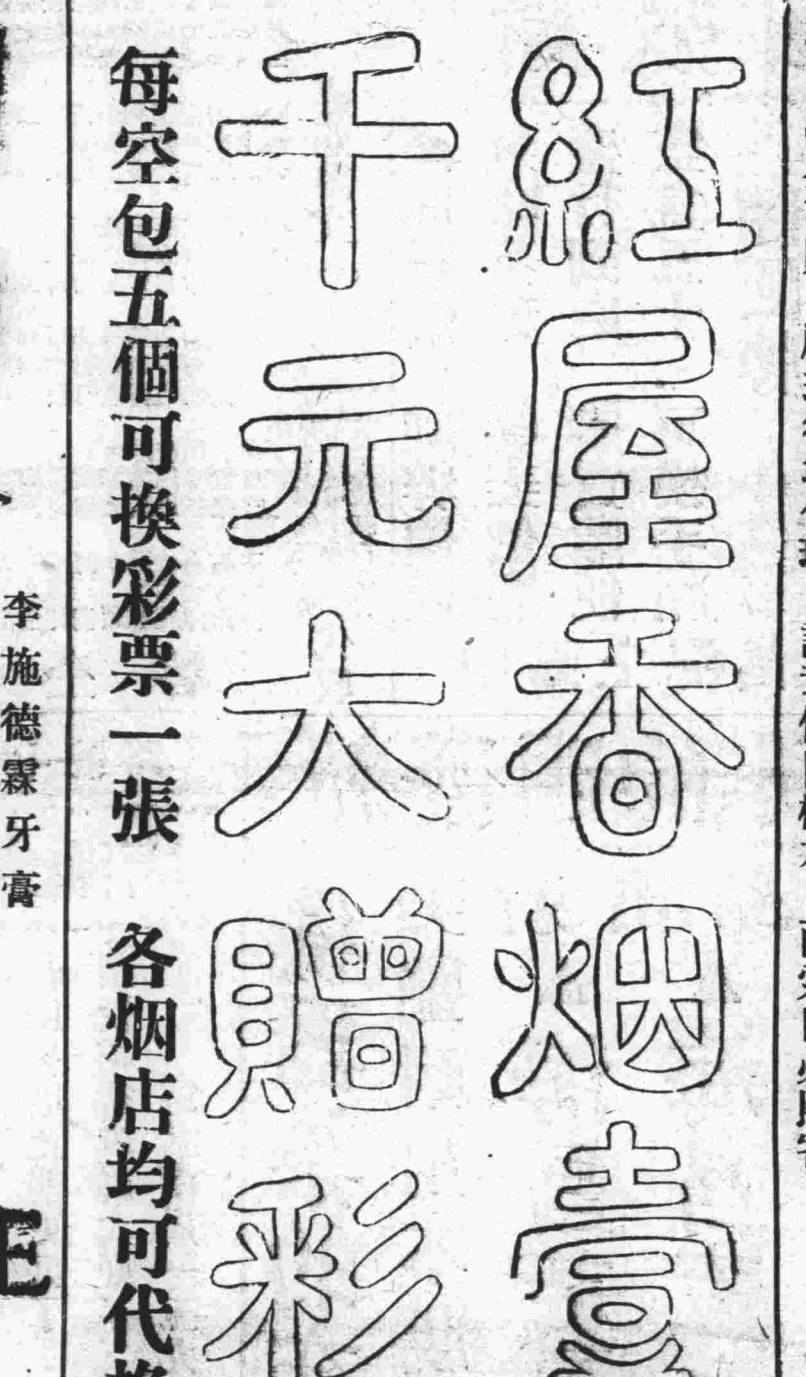 紅屋香烟壹
千元大贈彩
每空包五個可換彩票一張　各烟店均可代
李施德霖牙膏